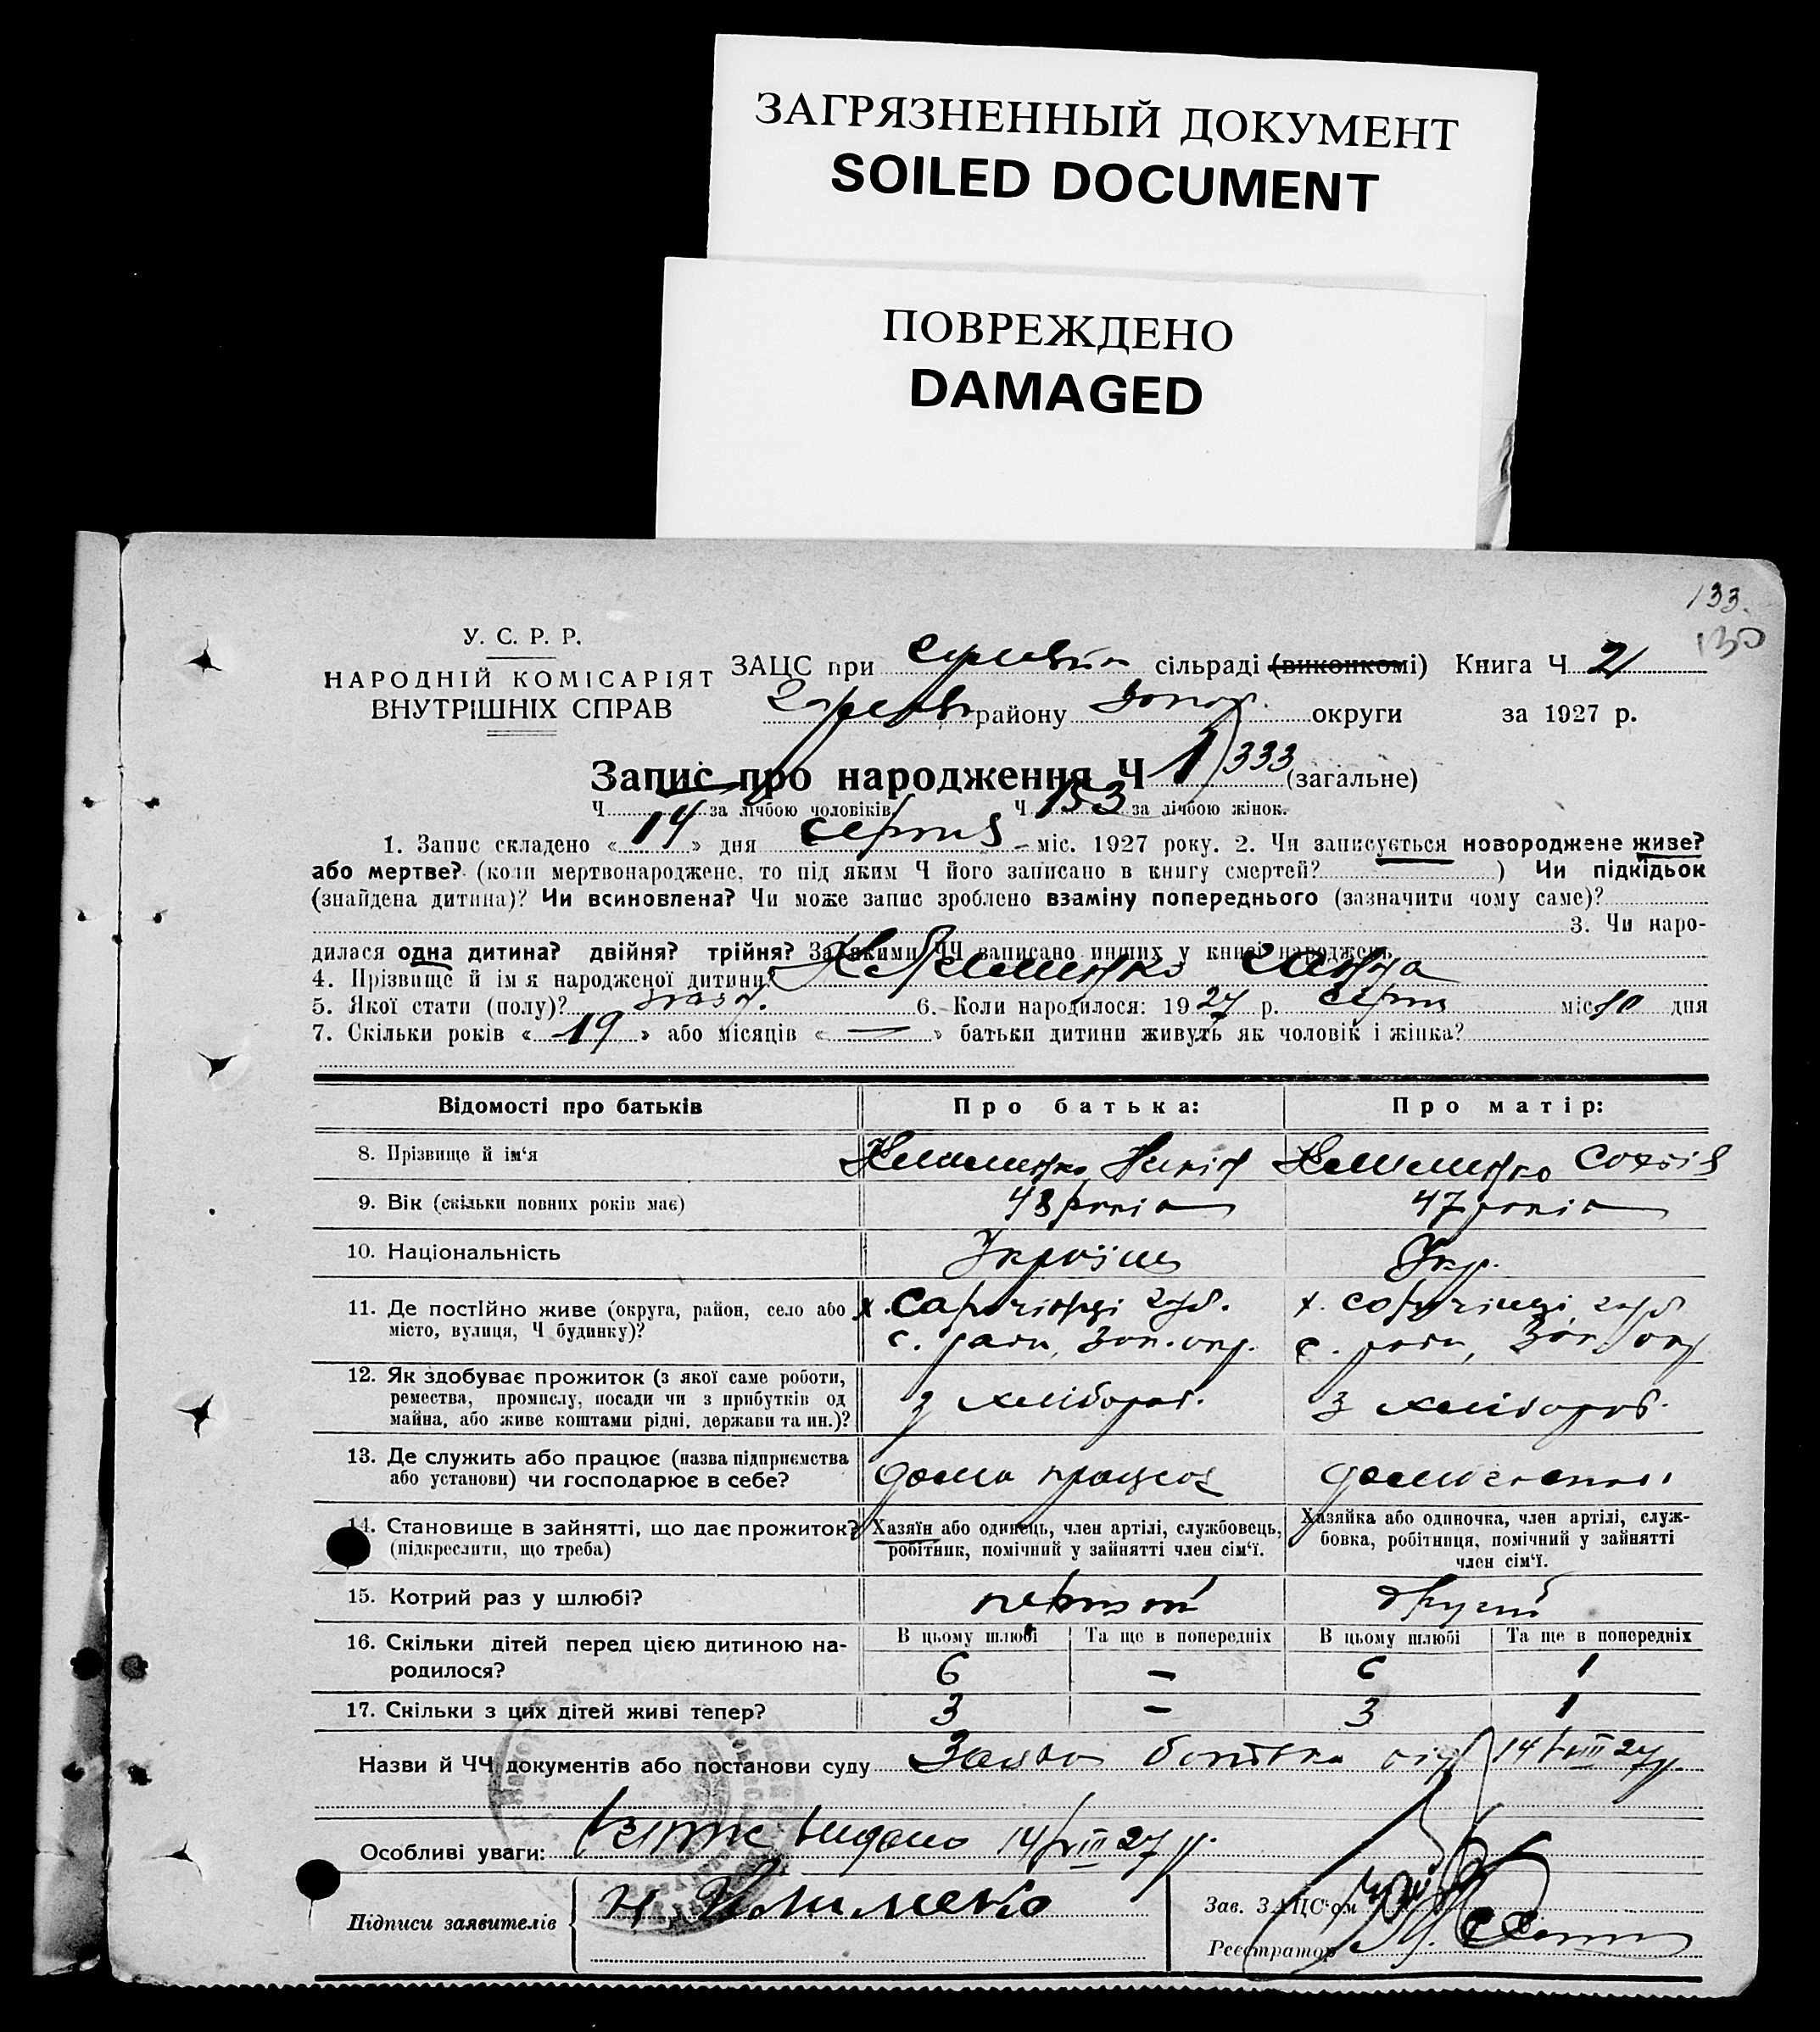 ЗАГРЯЗНЕННЫЙ ДОКУМЕНТ
SOILED DOCUMENT
ПОВРЕЖДЕНО
DAMAGED
133.
130
У. С. Р. Р.
НАРОДНІЙ КОМІСАРІЯТ
ВНУТРІШНІХ СПРАВ
ЗАЦС при сільраді (виконкомі) Книга Ч 21
району округи за 1927 р.
Запис про народження Ч 1/333 (загальне)
Ч за лічбою чоловіків Ч 153 за лічбою жінок.
1. Запис складено « 14 » дня серпня міс. 1927 року. 2. Чи записується новороджене живе?
або мертве? (коли мертвонароджене, то під яким Ч його записано в книгу смертей? ) Чи підкідьок
(знайдена дитина)? Чи всиновлена? Чи може запис зроблено взаміну попереднього (зазначити чому саме)?
3. Чи наро-
дилася одна дитина? двійня? трійня? За якими ЧЧ записано инших у книзі народжень
4. Прізвище й ім'я народженої дитини? Клименко Ганна
5. Якої стати (полу)? 6. Коли народилося: 1927 р. серпня міс 10 дня
7. Скільки років « 19 » або місяців « — » батьки дитини живуть як чоловік і жінка?
Відомості про батьків Про батька: Про матір:
8. Прізвище й ім'я Клименко Никін Клименко Софія
9. Вік (скільки повних років має) 48 років 47 років
10. Національність Украінец Укр.
11. Де постійно живе (округа, район, село або
місто, вулиця, Ч будинку)?
с. ради, Зап. окр. с. ради, Зап. окр
12. Як здобуває прожиток (з якої саме роботи,
ремества, промислу, посади чи з прибутків од
майна, або живе коштами рідні, держави та ин.)?
з хлібороб. з хлібороб.
13. Де служить або працює (назва підприємства
або установи) чи господарює в себе?
дома працює
14. Становище в зайнятті, що дає прожиток?
(підкреслити, що треба)
Хазяїн або одинець, член артілі, службовець,
робітник, помічний у зайнятті член сім'ї.
Хазяйка або одиночка, член артілі, служ-
бовка, робітниця, помічний у зайнятті
член сім'ї.
15. Котрий раз у шлюбі? первий другий
16. Скільки дітей перед цією дитиною на-
родилося?
В цьому шлюбі Та ще в попередніх В цьому шлюбі Та ще в попередніх
6 — 6 1
17. Скільки з цих дітей живі тепер? 3 - 3 1
Назви й ЧЧ документів або постанови суду Заява батька від 14/VIII 27 р.
Особливі уваги: видано 14/VIII 27 р.
Підписи заявителів Н. Клименко
Зав. ЗАЦС'ом
Реєстратор